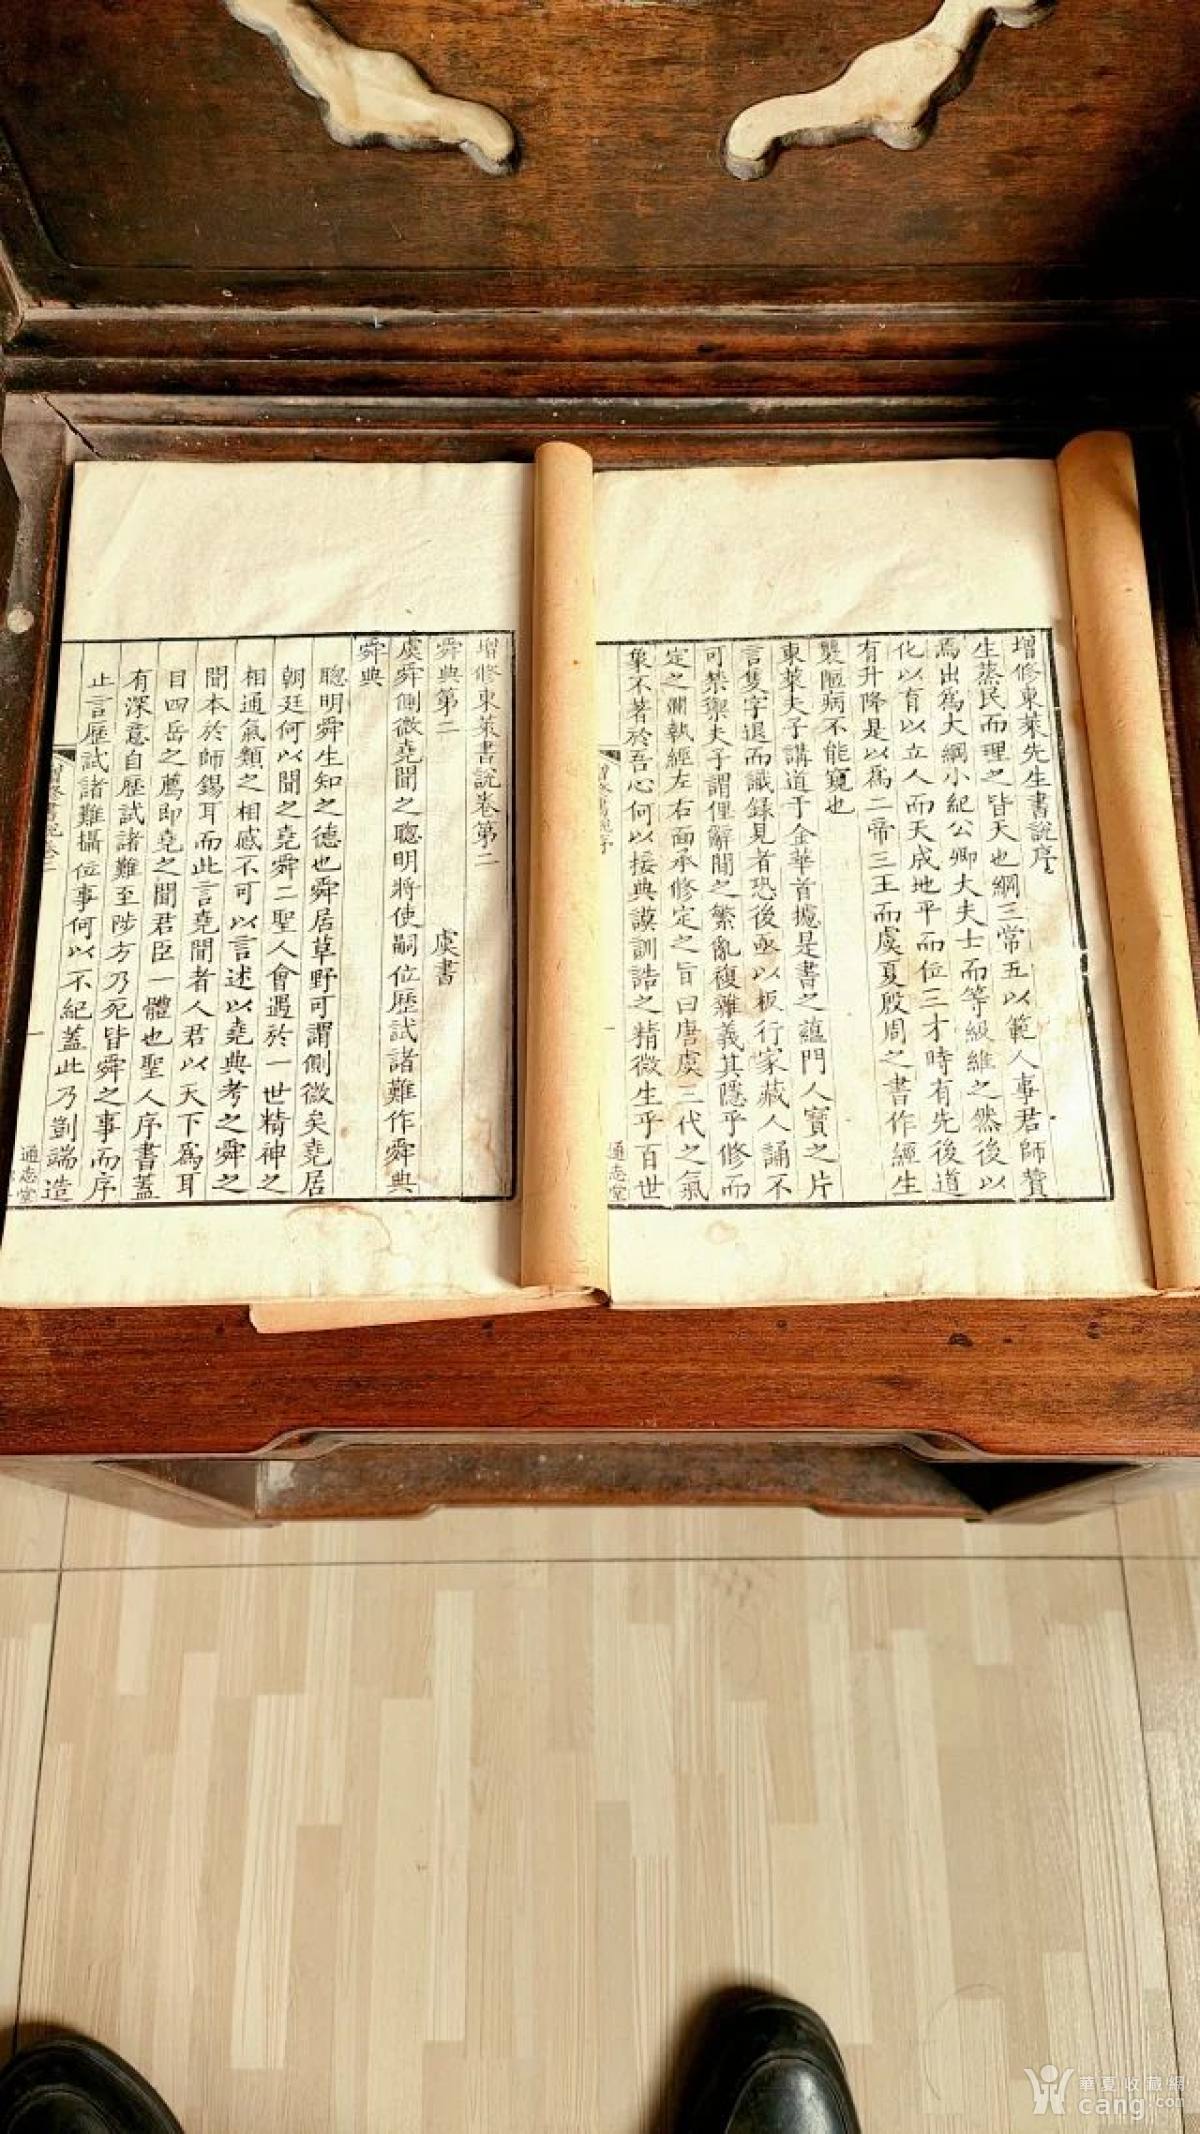 增修東萊先生書說序
生蒸民而理之皆天也綱三常五以範人事君師贊
焉出為大綱小紀公卿大夫士而等級維之然後以
化以育以立人而天成地平而位三才時有先後道
有升降是以為二帝三王而虞夏殷周之書作經生
襲陋病不能窺也
東萊夫子講道于金華首攄是書之蘊門人寶之片
言隻字退而識錄見者恐後亟以板行家藏人誦不
可禁禦夫子謂俚辭閒之繁亂複雜義其隱乎修而
定之瀾執經左右面承修定之旨曰唐虞三代之氣
象不著於吾心何以接典謨訓誥之精微生乎百世
增修書說序
一
通志堂
增修東萊書說卷第二
舜典第二 虞書
虞舜側微堯聞之聰明將使嗣位歷試諸難作舜典
舜典
聰明舜生知之德也舜居草野可謂側微矣堯居
朝廷何以聞之堯舜二聖人會遇於一世精神之
相通氣類之相感不可以言述以堯典考之舜之
聞本於師錫耳而此言堯聞者人君以天下為耳
目四岳之薦即堯之聞君臣一體也聖人序書蓋
有深意自歷試諸難至陟方乃死皆舜之事而序
止言歷試諸難攝位事何以不紀蓋此乃劉端造
增修書說卷二
一
通志堂
華夏收藏網
cang.com